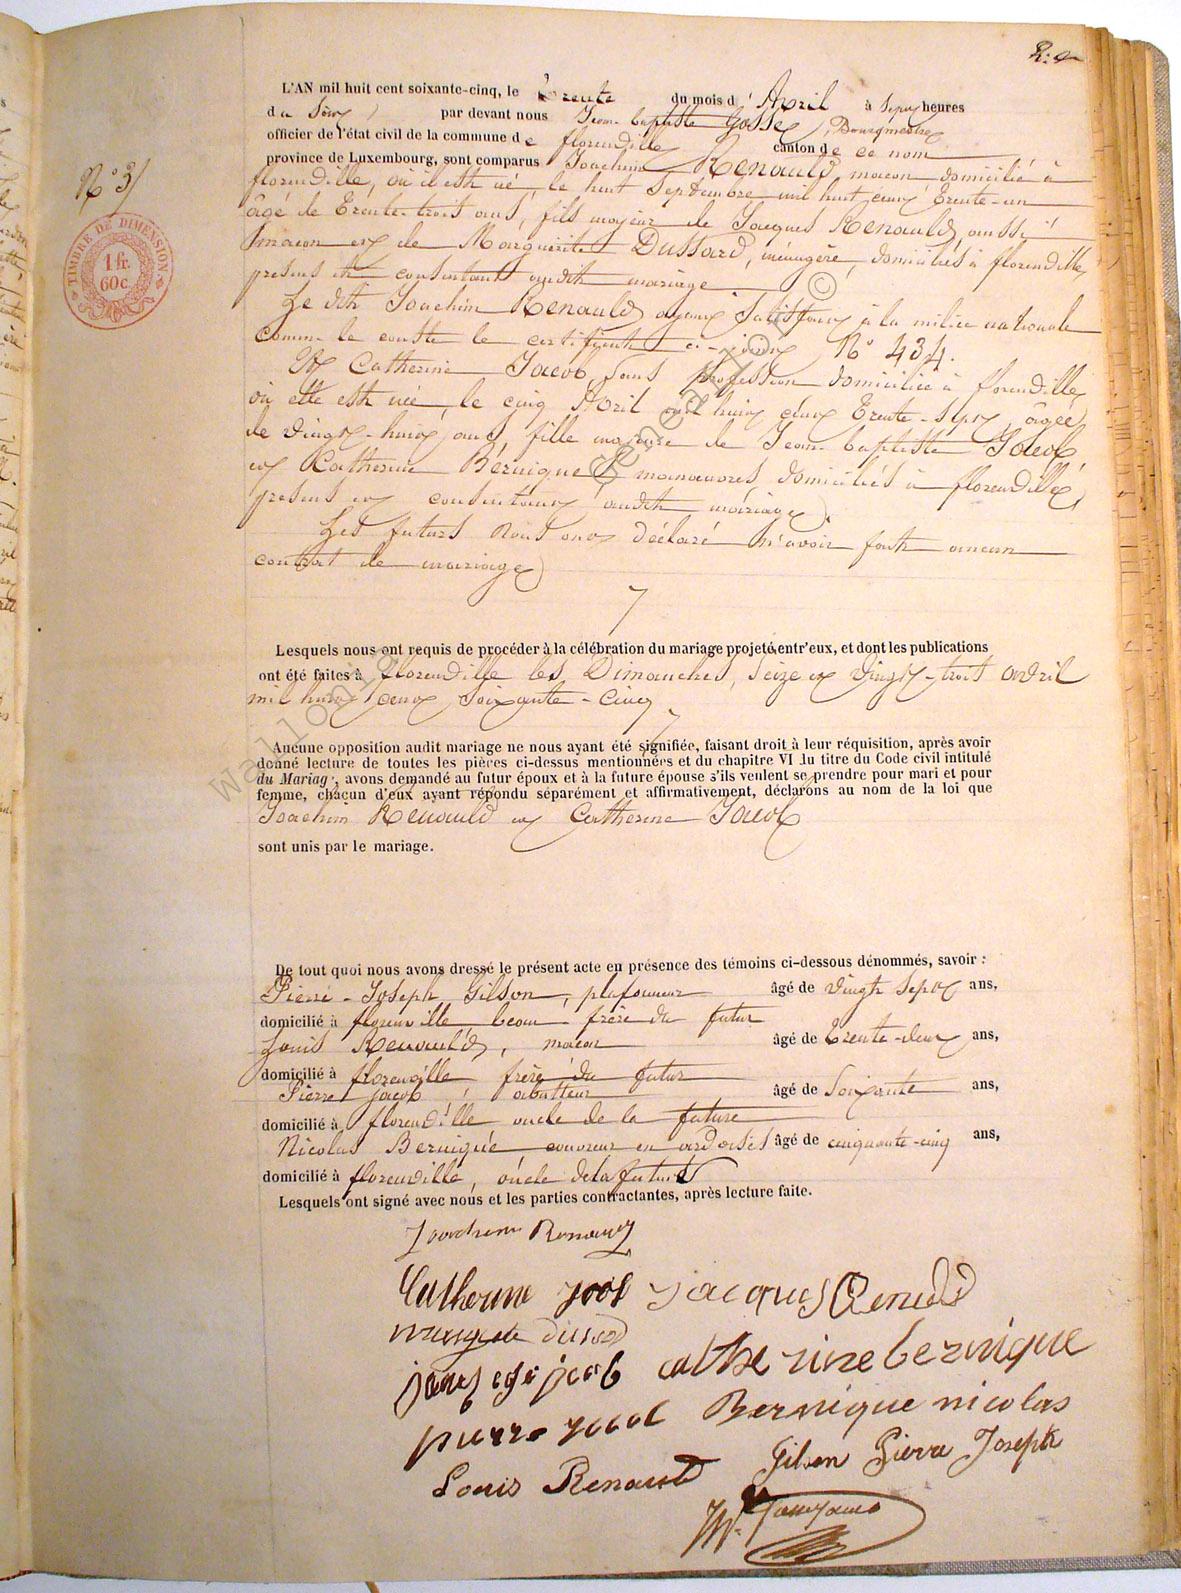 L'AN mil huit cent soixante-cinq, le Trente du mois d'Avril à sept heures
du soir par devant nous Jean-baptiste Gosse, Bourgmestre
officier de l'état civil de la commune de florenville canton de ce nom
province de Luxembourg, sont comparus Joachim Renauld, macon domicilié à
florenville, où il est né, le huit Septembre mil huit cent trente-un
âgé de Trente-trois ans, fils majeur de Jacques Renauld aussi
macon et de Marguerite Dussard, ménagère, domiciliés à florenville,
présens et consentans audit mariage
N° 3
TIMBRE DE DIMENSION
1 fr.
60c.
Le dit Joachim Renauld ayant satisfait à la milice nationale
comme le conste le certificat ci-joint N° 434.
Et Catherine Jacob sans profession domiciliée à florenville
où elle est née, le cinq Avril mil huit cent Trente-sept âgée
de vingt-huit ans, fille majeure de Jean-baptiste Jacob
et Catherine Bernique manœuvres domiciliés à florenville,
présens et consentans audit mariage.
Les futurs nous ont déclaré n'avoir fait aucun
contrat de mariage
Lesquels nous ont requis de procéder à la célébration du mariage projeté entr'eux, et dont les publications
ont été faites à florenville les Dimanches, Seize et Vingt-trois avril
mil huit cent soixante-cinq
Aucune opposition audit mariage ne nous ayant été signifiée, faisant droit à leur réquisition, après avoir
donné lecture de toutes les pièces ci-dessus mentionnées et du chapitre VI du titre du Code civil intitulé
du Mariage, avons demandé au futur époux et à la future épouse s'ils veulent se prendre pour mari et pour
femme, chacun d'eux ayant répondu séparément et affirmativement, déclarons au nom de la loi que
Joachim Renauld et Catherine Jacob
sont unis par le mariage.
De tout quoi nous avons dressé le présent acte en présence des témoins ci-dessous dénommés, savoir :
Pierre-Joseph Gilson, plafonneur âgé de vingt sept ans,
domicilié à florenville beau-frère du futur
Louis Renauld, macon âgé de Trente-deux ans,
domicilié à florenville frère du futur
Pierre jacob, abatteur âgé de Soixante ans,
domicilié à florenville oncle de la future
Nicolas Bernique couvreur en ardoises âgé de cinquante-cinq ans,
domicilié à florenville, oncle de la future
Lesquels ont signé avec nous et les parties contractantes, après lecture faite.
Joachim Renauld
Catherine jacob jacques Renauld
marguerite dussard
jacob catherine bernique
pierre jacob Bernique nicolas
Louis Renauld Gilson Pierre Joseph
wallonie Genealo ©